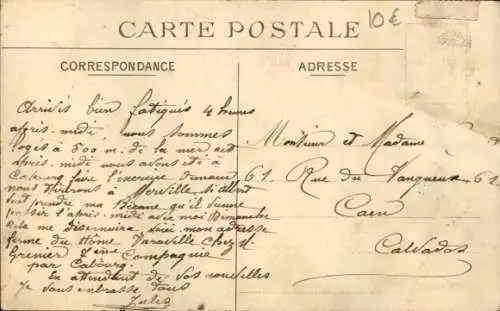 10€
CARTE POSTALE
CORRESPONDANCE
ADRESSE
Arrivés bien fatigués 4 heures
après-midi, nous sommes
logés à 500 m. de la mer cet
après-midi nous avons été à
Cabourg faire l'exercice
nous irons à Merville si Albert
veut prendre ma Bécane qu'il vienne
passer l'après-midi avec moi Dimanche
Cela me voici mon adresse
ferme du Hôme Varaville chez M.
Grenier Compagnie
par Cabourg.
En attendant de vos nouvelles
Je vous embrasse tous
Jules
Monsieur et Madame
61 Rue du Vaugueux 61
Caen
Calvados